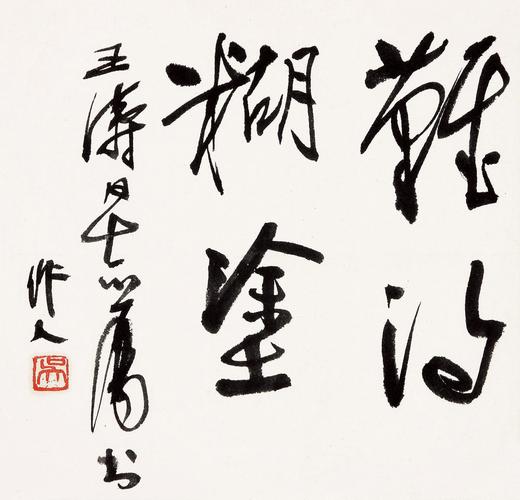 難得
糊塗
王濤同志屬书
作人
吴